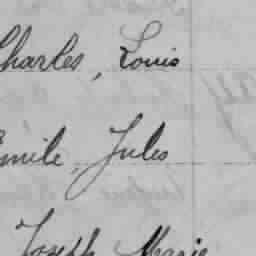 Charles, Louis
Emile, Jules
Joseph Marie